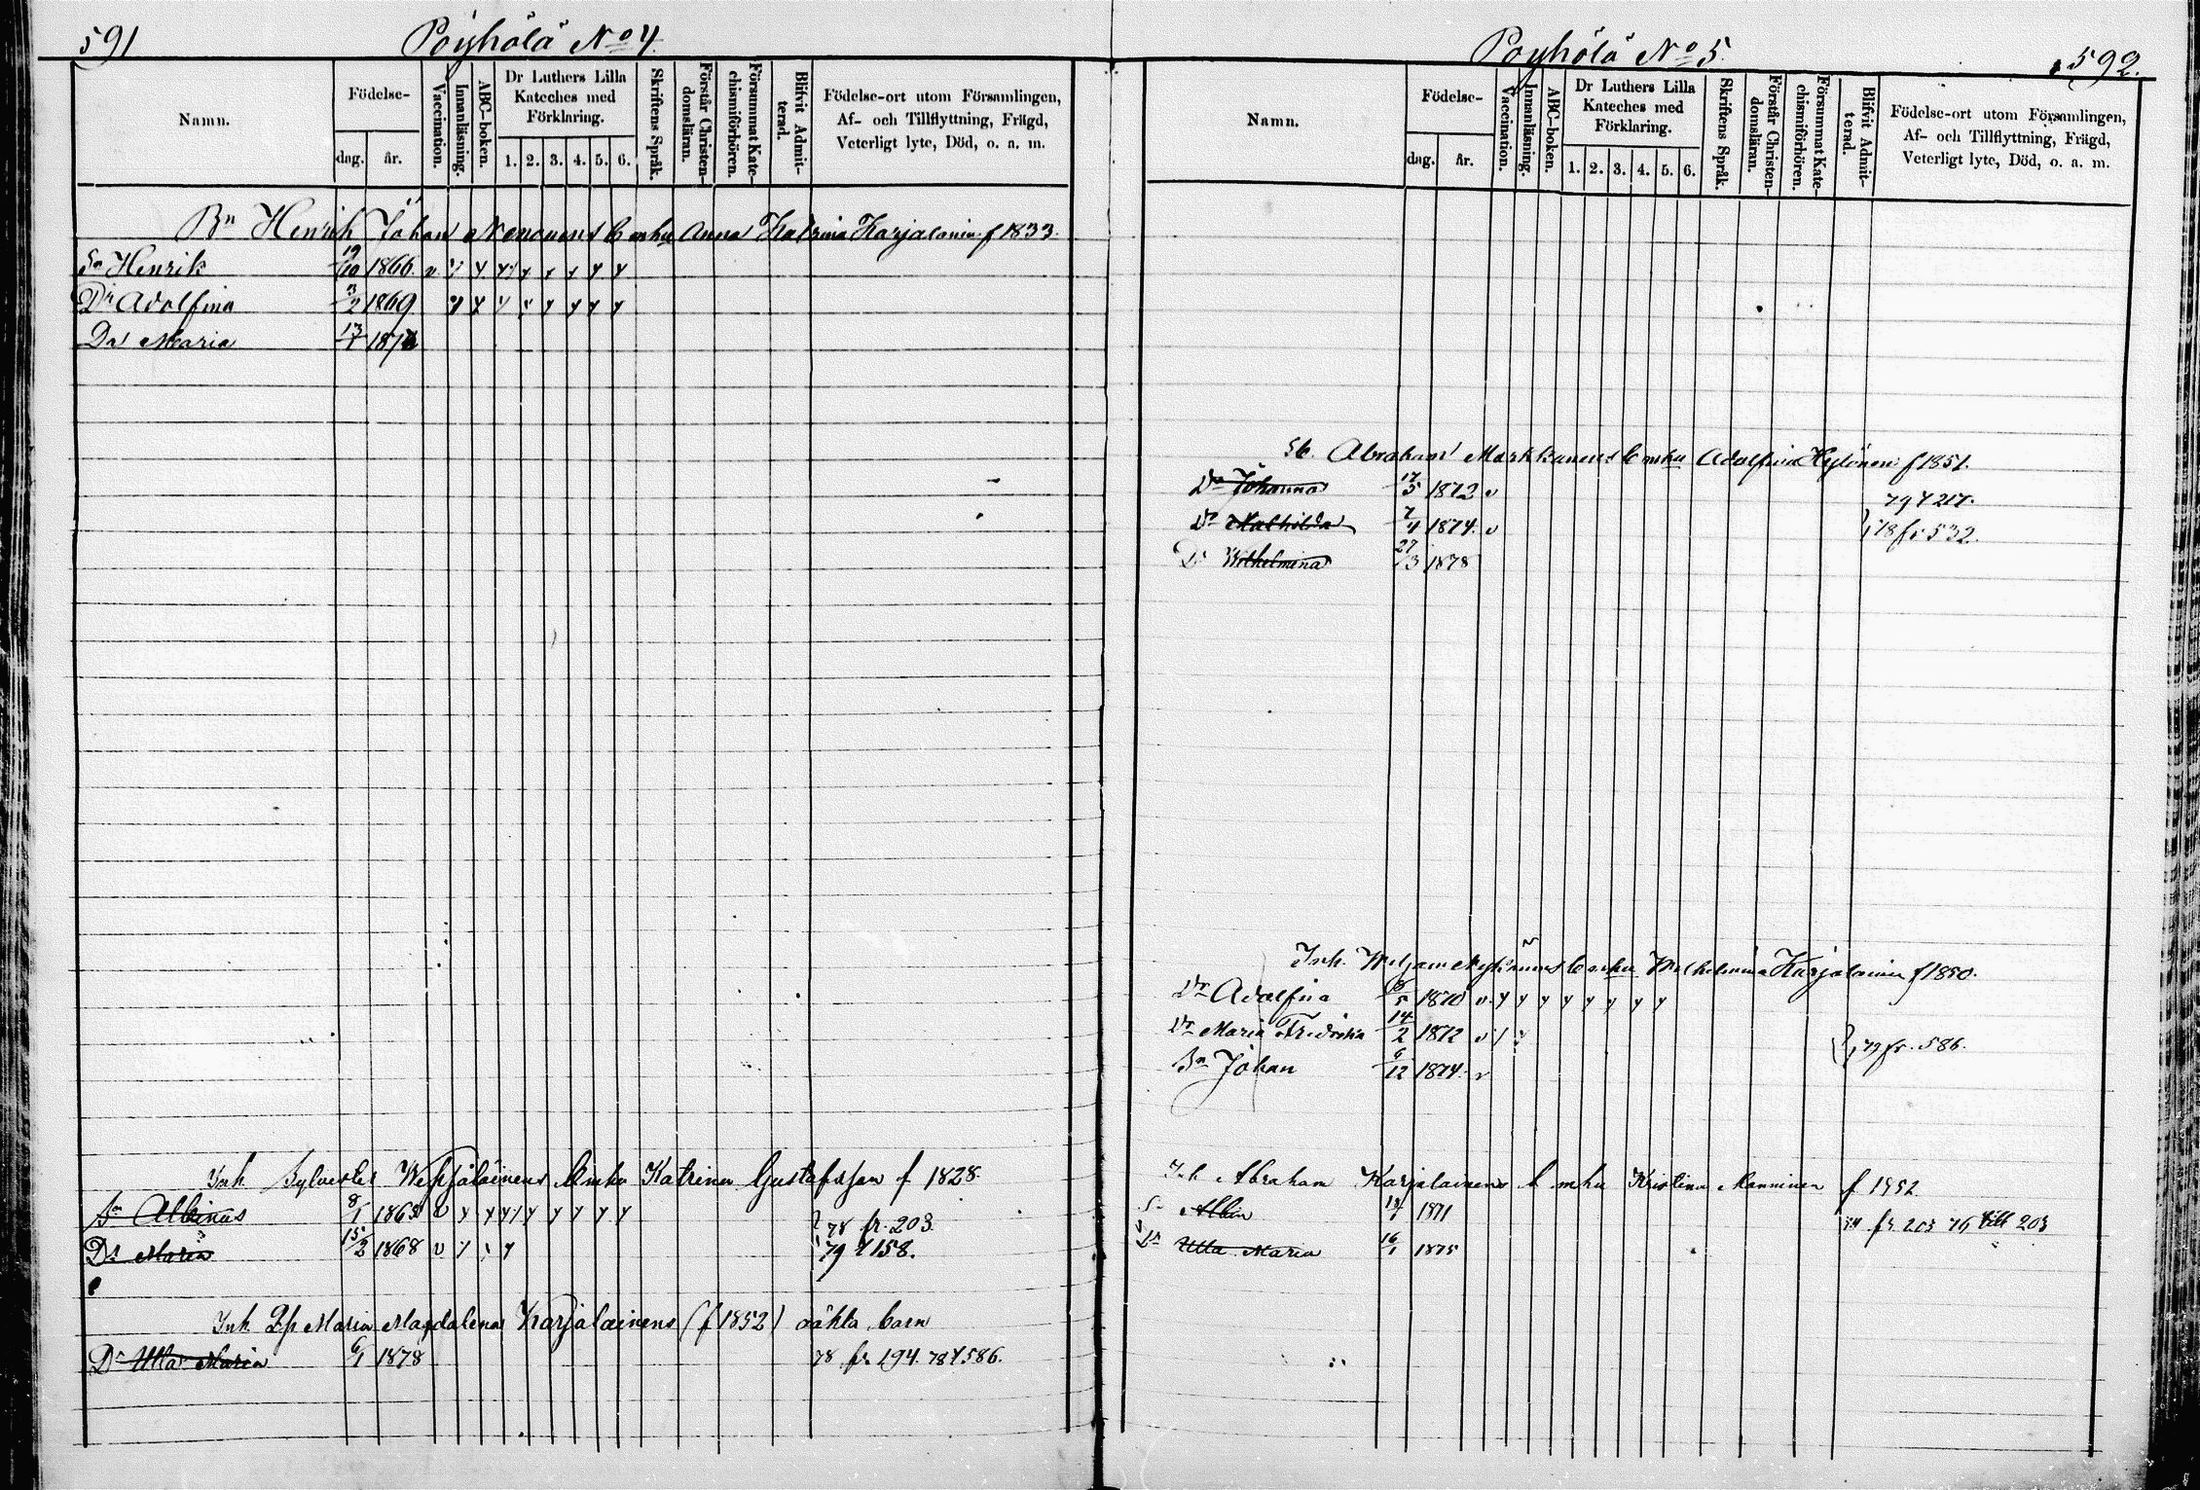 591 Pöyhölä No 4.
Namn.
Födelse-
dag. år.
Vaccination.
Innanläsning.
ABC-boken.
Dr Luthers Lilla Kateches med Förklaring.
1. 2. 3. 4. 5. 6.
Skriftens Språk.
Förstår Christendomsläran.
Försummat Katechismiförhören.
Blifvit Admitterad.
Födelse-ort utom Församlingen,
Af- och Tillflyttning, Frägd,
Veterligt lyte, Död, o. a. m.
Bn Henrik Johan Nenonens b mhu Anna Katrina Karjalainen f 1833.
Sn Henrik 19/10 1866. v y y y y y y y y
Dr Adolfina 3/2 1869 y y y y y y y y
Dr Maria 13/1
Inh Sylvester Wepsäläinens b mhu Katrina Gustafsson f 1828
Sn Albinus 8/1 1865 v y y y y y y y y
78 fr. 203.
Dr Maria 15/2 1868 v y y y 79 t 158.
Inh. Dp Maria Magdalena Karjalainens (f 1852) oäkta barn
Dr Ulla Maria 6/1 1878 78 fr 194. 78 t 586.
Pöyhölä No 5. 592.
Namn.
Födelse-
dag. år.
Vaccination.
Innanläsning.
ABC-boken.
Dr Luthers Lilla Kateches med Förklaring.
1. 2. 3. 4. 5. 6.
Skriftens Språk.
Förstår Christendomsläran.
Försummat Katechismiförhören.
Blifvit Admitterad.
Födelse-ort utom Församlingen,
Af- och Tillflyttning, Frägd,
Veterligt lyte, Död, o. a. m.
Abraham Markkanens b mhu Adolfina f 1851.
Dr Johanna 17/5 1872 v 79 t 217.
Dr Mathilda 7/4 1874. v 78 fr 532.
Dr Wilhelmina 27/3 1878
Inh. b mhu Wilhelmina Karjalainen f 1850.
Dr Adolfina 1870 v y y y y y y y y
Dr Maria Fredrika 14/2 1872 v
79 fr. 586.
Sn Johan 6/12 1874. v
Inh Abraham Karjalainens b mhu Kristina Manninen f 1852
Sn Albin 1871 fr 203 76 till 203
Dr Ulla Maria 16/1 1875